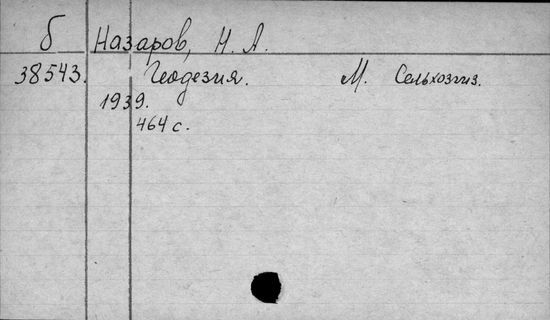 б Назаров, Н. А.
38543. Геодезия. М. Сельхозгиз.
1939.
464 с.